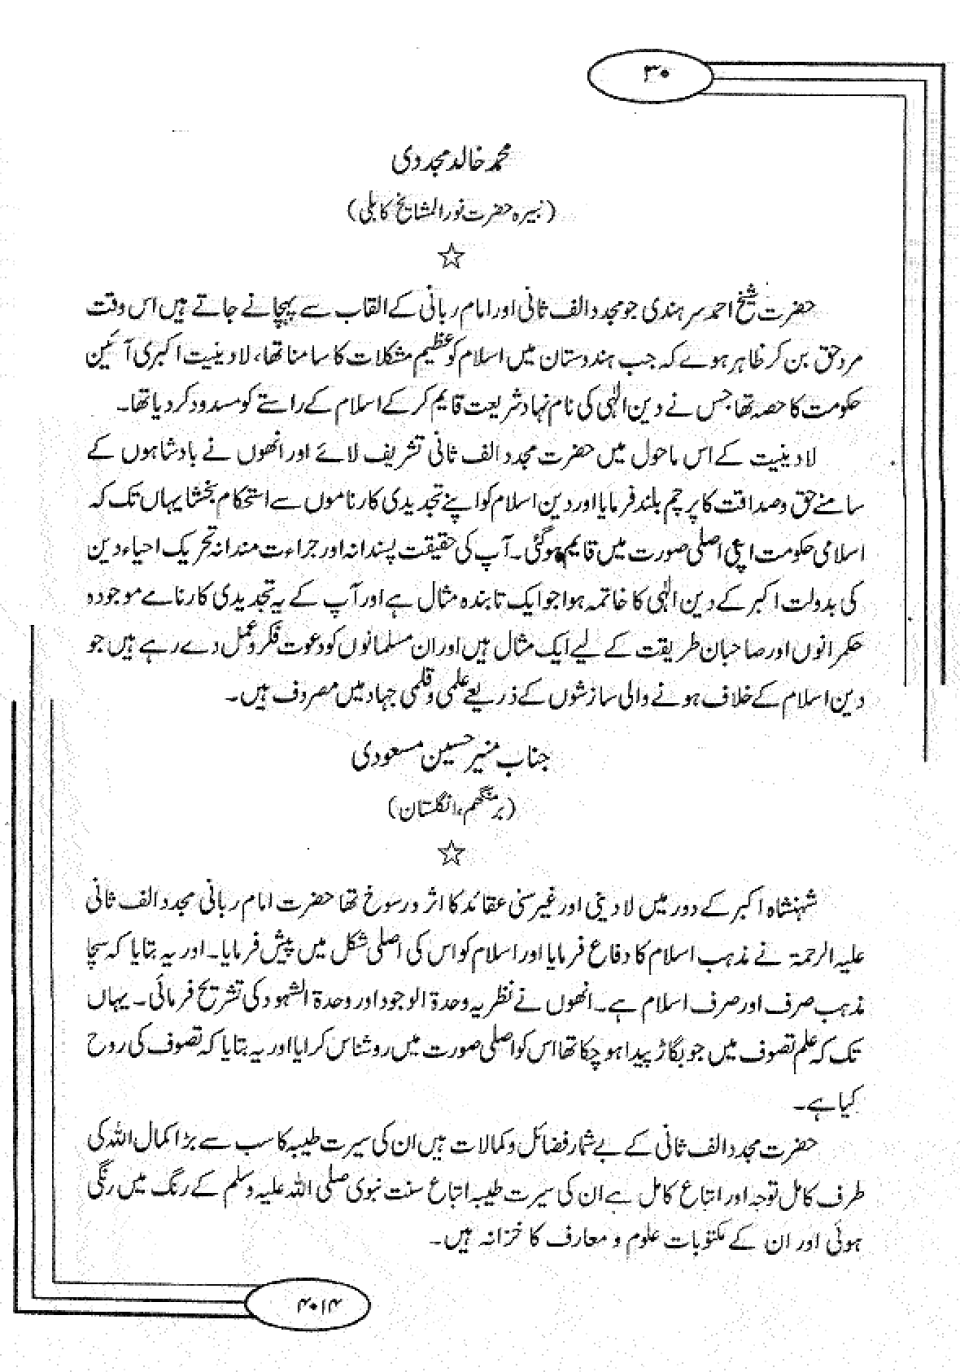 ۳۰
محمد خالد مجددی
(نبیرہ حضرت نور المشایخ کابلی)
حضرت شیخ احمد سرہندی جو مجدد الف ثانی اور امام ربانی کے القاب سے پہچانے جاتے ہیں اس وقت
مرد حق بن کر ظاہر ہوے کہ جب ہندوستان میں اسلام کو عظیم مشکلات کا سامنا تھا، لادینیت اکبری آئین
حکومت کا حصہ تھا جس نے دین الٰہی کی نام نہاد شریعت قایم کر کے اسلام کے راستے کو مسدود کر دیا تھا۔
لادینیت کے اس ماحول میں حضرت مجدد الف ثانی تشریف لائے اور انھوں نے بادشاہوں کے
سامنے حق و صداقت کا پرچم بلند فرمایا اور دین اسلام کو اپنے تجدیدی کارناموں سے استحکام بخشا یہاں تک کہ
اسلامی حکومت اپنی اصلی صورت میں قایم ہوگئی۔ آپ کی حقیقت پسندانہ اور جراءت مندانہ تحریک احیاء دین
کی بدولت اکبر کے دین الٰہی کا خاتمہ ہوا جو ایک تابندہ مثال ہے اور آپ کے یہ تجدیدی کارنامے موجودہ
حکمرانوں اور صاحبان طریقت کے لیے ایک مثال ہیں اور ان مسلمانوں کو دعوت فکر و عمل دے رہے ہیں جو
دین اسلام کے خلاف ہونے والی سازشوں کے ذریعے علمی و قلمی جہاد میں مصروف ہیں۔
جناب منیر حسین مسعودی
(برمنگھم، انگلستان)
شہنشاہ اکبر کے دور میں لادینی اور غیر سنی عقائد کا اثر و رسوخ تھا حضرت امام ربانی مجدد الف ثانی
علیہ الرحمۃ نے مذہب اسلام کا دفاع فرمایا اور اسلام کو اس کی اصلی شکل میں پیش فرمایا۔ اور یہ بتایا کہ سچا
مذہب صرف اور صرف اسلام ہے۔ انھوں نے نظریہ وحدۃ الوجود اور وحدۃ الشہود کی تشریح فرمائی۔ یہاں
تک کہ علم تصوف میں جو بگاڑ پیدا ہو چکا تھا اس کو اصلی صورت میں روشناس کرایا اور یہ بتایا کہ تصوف کی روح
کیا ہے۔
حضرت مجدد الف ثانی کے بے شمار فضائل و کمالات ہیں ان کی سیرت طیبہ کا سب سے بڑا کمال اللہ کی
طرف کامل توجہ اور اتباع کامل ہے ان کی سیرت طیبہ اتباع سنت نبوی صلی اللہ علیہ وسلم کے رنگ میں رنگی
ہوئی اور ان کے مکتوبات علوم و معارف کا خزانہ ہیں۔
۲۰۱۴